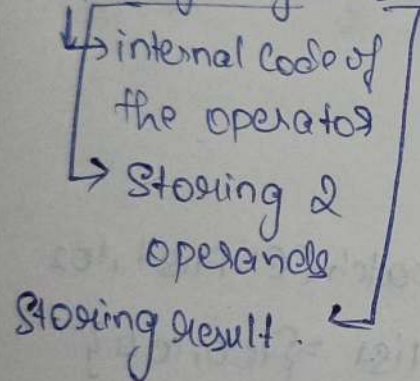 internal code of
the operator
Storing 2
operands
Storing result.